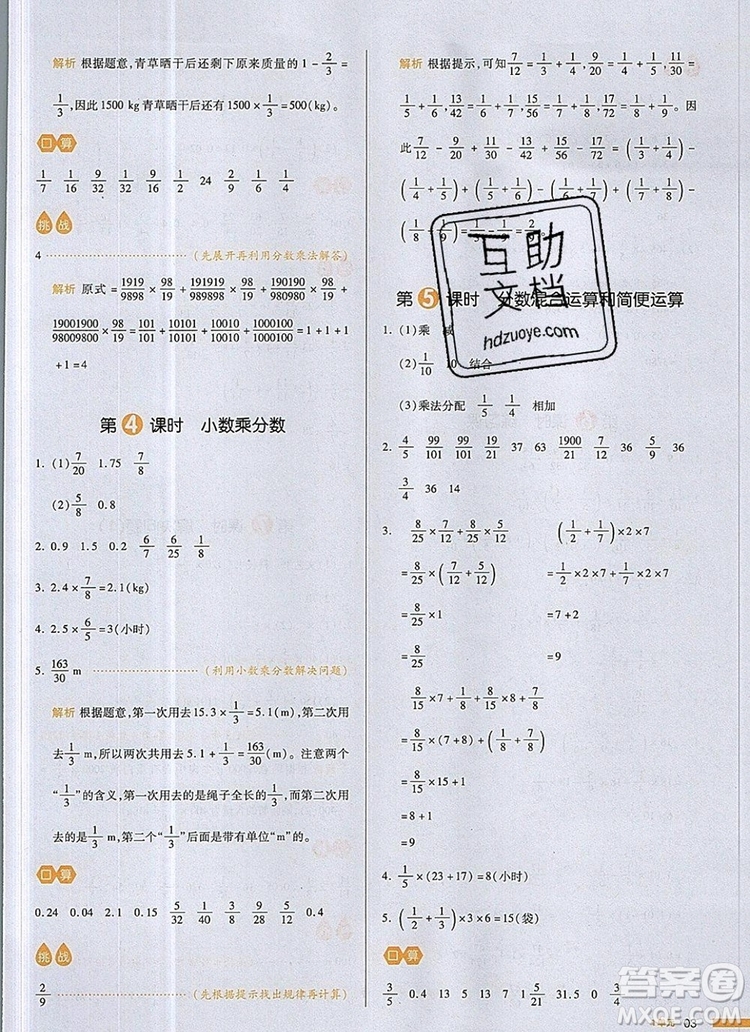 解析 根据题意，青草晒干后还剩下原来质量的 1 - 2/3 =
1/3，因此 1500 kg 青草晒干后还有 1500 × 1/3 = 500(kg)。
口算
1/7 1/16 9/32 9/16 1/2 24 2/9 1/6 1/4
挑战
4 (先展开再利用分数乘法解答)
解析 原式 = 1919/9898 × 98/19 + 191919/989898 × 98/19 +
19001900/98009800 = 101/101 + 10101/10101 + 1001/1001 + 1 = 1 + 1 + 1
+1=4
第4课时 小数乘分数
1. (1) 7/20 1.75 7/8
(2) 5/8 0.8
2. 0.9 1.5 0.2 6/7 6/25 1/8
3. 2.4 × 7/8 = 2.1(kg)
4. 2.5 × 6/5 = 3(小时)
5. 163/30 m (利用小数乘分数解决问题)
解析 根据题意，第一次用去 15.3 × 1/3 = 5.1(m)，第二次用
去 1/3 m，所以两次共用去 5.1 + 1/3 = 163/30 (m)。注意两个
“1/3”的含义，第一次用去的是绳子全长的 1/3，第二次用
去的是 1/3 m，第二个“1/3”后面是带有单位“m”的。
口算
0.24 0.04 2.1 0.15 5/32 1/15 9/32 5/12 0.4
挑战
2/9 (先根据提示找出规律再计算)
解析 根据提示，可知 7/12 = 1/3 + 1/4，9/20 = 1/4 + 1/5，11/30 =
1/5 + 1/6，13/42 = 1/6 + 1/7，15/56 = 1/7 + 1/8，17/72 = 1/8 + 1/9。因
此 7/12 - 9/20 + 11/30 - 13/42 + 15/56 - 17/72 = (1/3 + 1/4) -
(1/4 + 1/5) + (1/5 + 1/6) - (1/6 + 1/7) + (1/7 + 1/8) -
(1/8 + 1/9) = 1/3 - 1/9 = 2/9。
互助文档
hdzuoye.com
第5课时 分数混合运算和简便运算
1. (1)乘 减
(2) 1/10 10 结合
(3)乘法分配 1/5 1/4 相加
2. 4/5 99/101 99/101 21 15 37 37 1900/21 7/12 36 36
3/4 36 14
3. 8/25 × 7/12 + 8/25 × 5/12 (1/2 + 1/7) × 2 × 7
= 8/25 × (7/12 + 5/12) = 1/2 × 2 × 7 + 1/7 × 2 × 7
= 8/25 × 1 = 7 + 2
= 8/25 = 9
8/15 × 7 + 1/2 + 8/15 × 8 + 1/2
= 8/15 × (7+8) + (1/2 + 1/2)
= 8/15 × 15 + 1
=8+1
=9
4. 1/5 × (23+17) = 8(小时)
5. (1/2 + 1/3) × 3 × 6 = 15(袋)
口算
3/5 0.4 13 4 15 1/2 5/21 31.5 0 4/5
答案圈
03